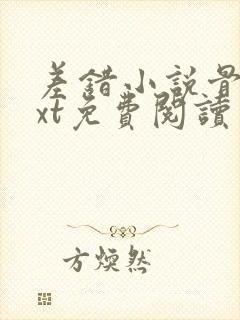 差錯小說最
xt免費閱讀
方煥然